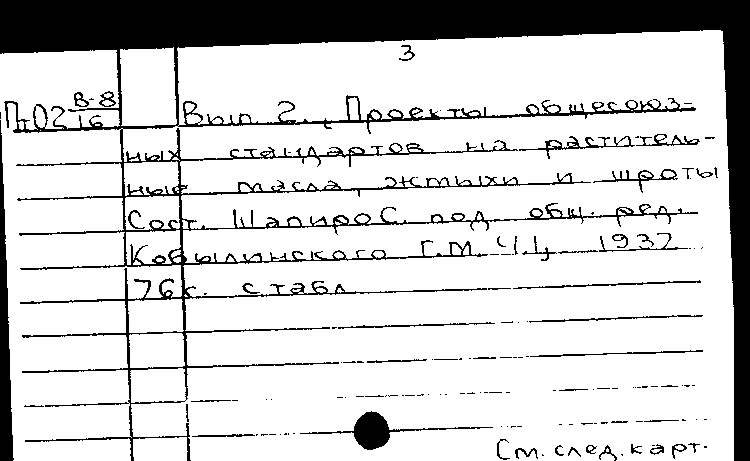 3
Пт02 В-8/16 Вып. 2., Проекты общесоюз-
ных стандартов на раститель-
ные масла, жмыхи и шроты
Сост. Шапиро С. под. общ. ред.
Кобылинского Г.М. Ч.I, 1937
76с. с табл
См. след. карт.